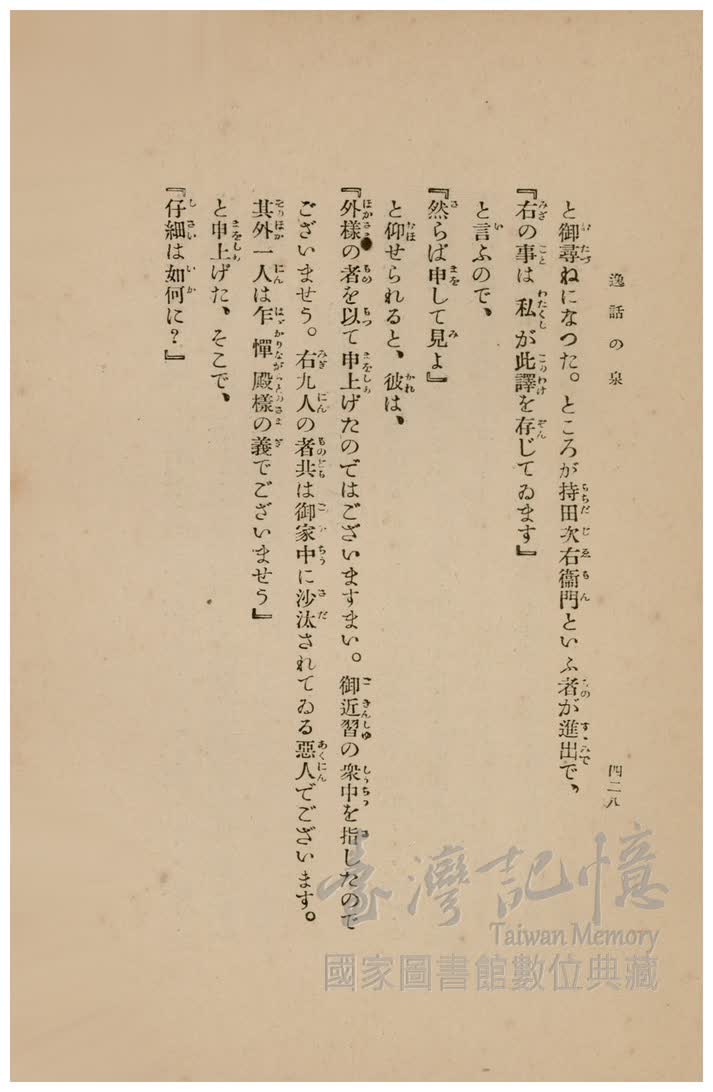 逸話の泉
四二八
と御尋ねになつた。ところが持田次右衞門といふ者が進出で、
『右の事は私が此譯を存じてゐます』
と言ふので、
『然らば申して見よ』
と仰せられると、彼は、
『外様の者を以て申上げたのではございますまい。御近習の衆中を指したので
ございませう。右九人の者共は御家中に沙汰されてゐる惡人でございます。
其外一人は乍憚殿樣の義でございませう』
と申上げた、そこで、
『仔細は如何に?』
臺灣記憶
Taiwan Memory
國家圖書館數位典藏